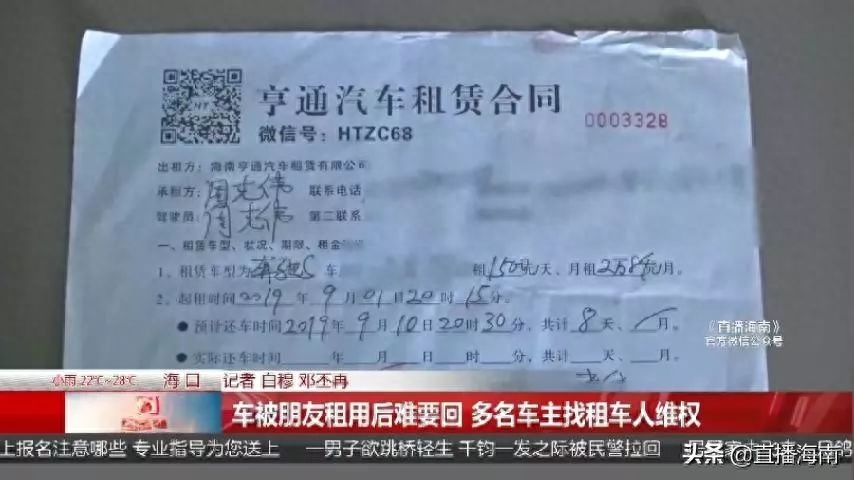 亨通汽车租赁合同
000332B
微信号：HTZC68
出租方：海南亨通汽车租赁有限公
承租方：周志伟 联系电话
驾驶员：周志伟 第二联系
一、租赁车型、状况、期限、租金
1、租赁车型为奔驰S车 租1500元/天、月租2万8仟元/月。
2、起租时间2019年9月01日20时15分。
●预计还车时间2019年9月10日20时30分，共计8天、/月。
●实际还车时间 年 月 日 时 分，共计 天、 月。
《直播海南》
官方微信公众号
小雨 22℃~28℃ 海口 记者 白穆 邓丕冉
车被朋友租用后难要回 多名车主找租车人维权
上报名注意哪些 专业指导为您送上 一男子欲跳桥轻生 千钧一发之际被民警拉回
头条 @直播海南